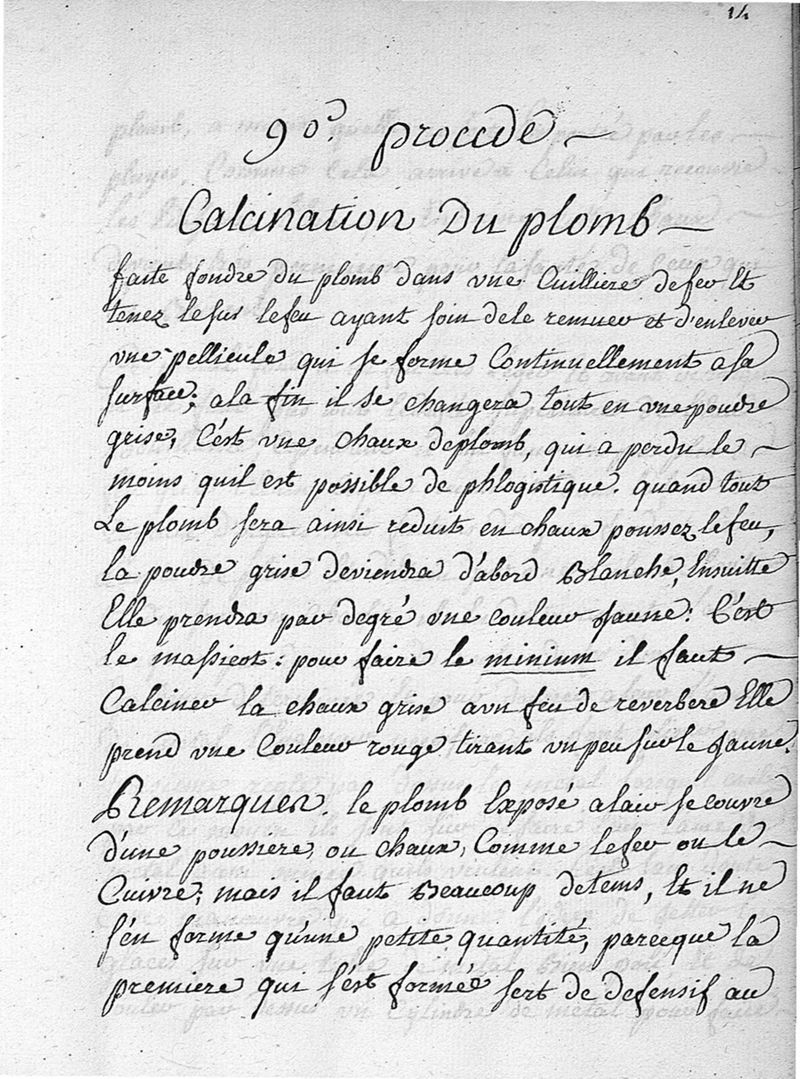 14
90.e procedé
Calcination Du plomb
faite fondre du plomb dans vne Cuilliere de fer Et
tenez le sus le feu ayant soin de le remuer et d'enlever
vne pellicule qui se forme Continuellement a sa
surface; a la fin il se changera tout en vne poudre
grise, C'est vne chaux de plomb, qui a perdu le
moins quil est possible de phlogistique. quand tout
Le plomb sera ainsi reduit en chaux poussez le feu,
la poudre grise deviendra d'abord Blanche, Ensuitte
Elle prendra par degré vne couleur Jaune: C'est
le massicot: pour faire le minium il faut
Calciner la chaux grise a vn feu de reverbere Elle
prend vne Couleur rouge tirant vn peu sur le Jaune.
Remarques. le plomb Exposé a lair se couvre
d'une poussiere, ou chaux, Comme le fer ou le
Cuivre; mais il faut Beaucoup de tems, Et il ne
s'en forme qu'une petite quantité, parceque la
premiere qui s'est formée sert de defensif au